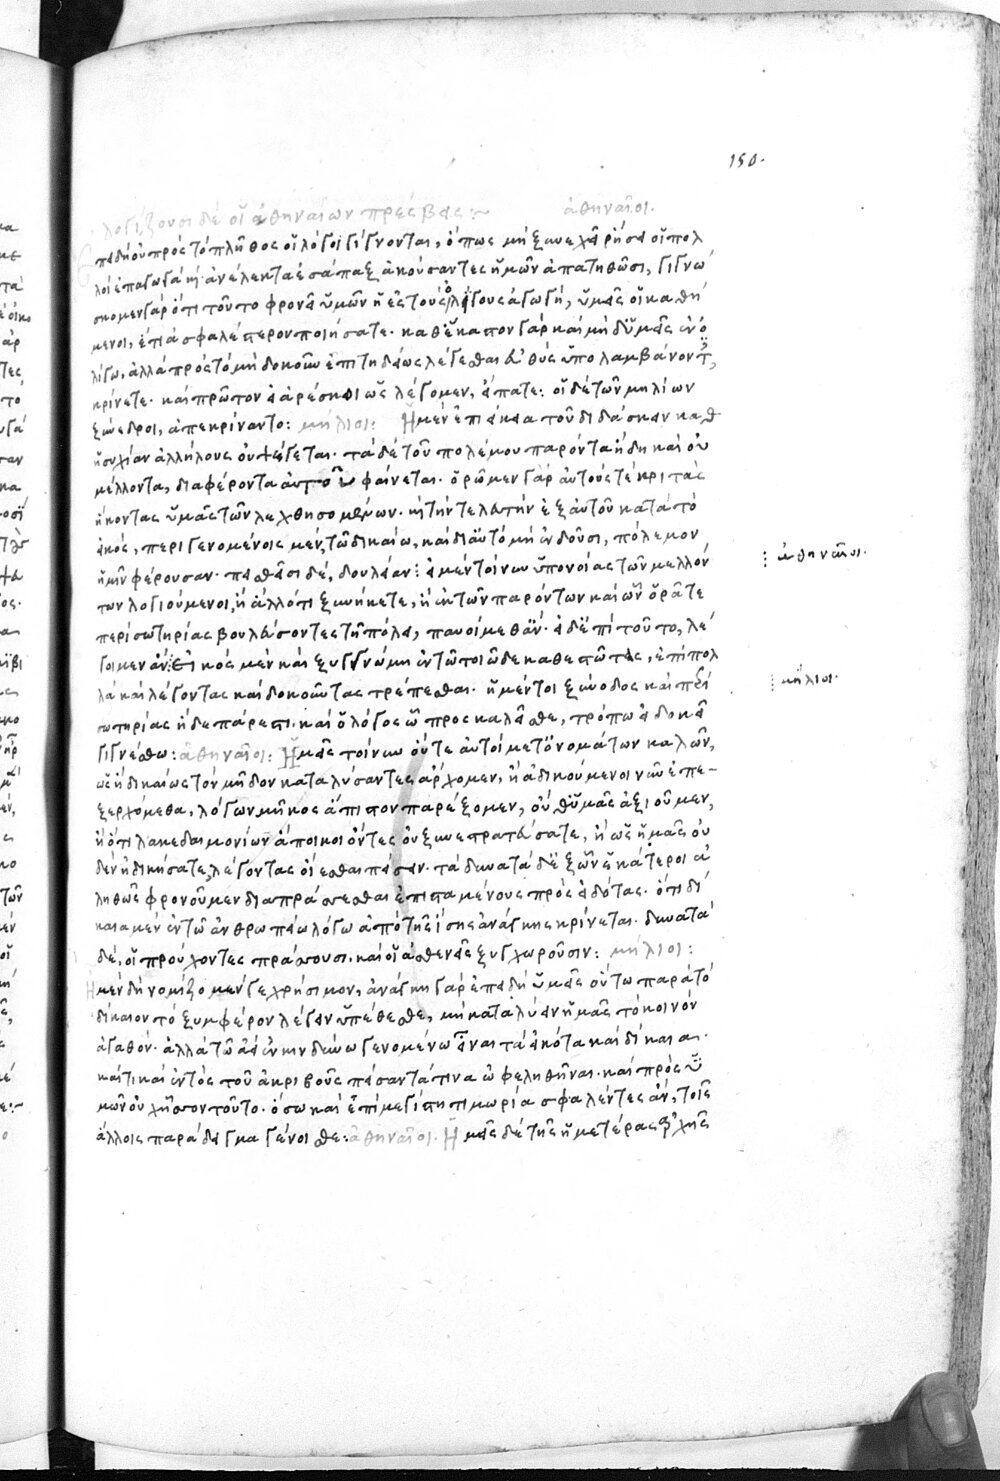 150.
λογίζουσι δὲ οἱ ἀθηναίων πρέσβεις :~ ἀθηναῖοι.
πειδὴ οὐ πρὸς τὸ πλῆθος οἱ λόγοι γίγνονται, ὅπως μὴ ξυνεχεῖ ῥήσει οἱ πολ
λοὶ ἐπαγωγὰ καὶ ἀνέλεγκτα ἐσάπαξ ἀκούσαντες ἡμῶν ἀπατηθῶσι, γιγνώ
σκομεν γὰρ ὅτι τοῦτο φρονεῖ ὑμῶν ἡ ἐς τοὺς ὀλίγους ἀγωγή, ὑμεῖς οἱ καθή
μενοι, ἔτι ἀσφαλέστερον ποιήσατε. καθ' ἕκαστον γὰρ καὶ μὴ δ' ὑμεῖς ἑνὶ
λόγω, ἀλλὰ πρὸς τὸ μὴ δοκοῦν ἐπιτηδείως λέγεσθαι εὐθὺς ὑπολαμβάνοντες,
κρίνετε. καὶ πρῶτον εἰ ἀρέσκει ὡς λέγομεν, εἴπατε: οἱ δὲ τῶν μηλίων
ξύνεδροι, ἀπεκρίναντο: μήλιοι: Ἡ μὲν ἐπιείκεια τοῦ διδάσκειν καθ
ἡσυχίαν ἀλλήλους οὐ ψέγεται. τὰ δὲ τοῦ πολέμου παρόντα ἤδη καὶ οὐ
μέλλοντα, διαφέροντα αὐτοῦ φαίνεται. ὁρῶμεν γὰρ αὐτούς τε κριτὰς
ἥκοντας ὑμᾶς τῶν λεχθησομένων. καὶ τὴν τελευτὴν ἐξ αὐτοῦ κατὰ τὸ
εἰκός, περιγενομένοις μὲν τῶ δικαίω, καὶ δι' αὐτὸ μὴ ἐνδοῦσι, πόλεμον
ἡμῖν φέρουσαν. πεισθεῖσι δέ, δουλείαν: εἰ μὲν τοίνυν ὑπονοίας τῶν μελλόν
των λογιούμενοι, ἢ ἄλλό τι ξυνήκετε, ἢ ἐκ τῶν παρόντων καὶ ὧν ὁρᾶτε
περὶ σωτηρίας βουλεύσοντες τῆ πόλει, παυοίμεθ' ἄν. εἰ δ' ἐπὶ τοῦτο, λέ
γοιμεν ἄν: εἰκὸς μὲν καὶ ξυγγνώμη ἐν τῶ τοιῶδε καθεστῶτας, ἐπὶ πολ
λὰ καὶ λέγοντας καὶ δοκοῦντας τρέπεσθαι. ἡ μέντοι ξύνοδος καὶ περὶ
σωτηρίας ἥδε πάρεστι. καὶ ὁ λόγος ὧ προκαλεῖσθε, τρόπω εἰ δοκεῖ
γιγνέσθω: ἀθηναῖοι: Ἡμεῖς τοίνυν οὔτε αὐτοὶ μετ' ὀνομάτων καλῶν,
ὡς ἢ δικαίως τὸν μῆδον καταλύσαντες ἄρχομεν, ἢ ἀδικούμενοι νῦν ἐπε-
ξερχόμεθα, λόγων μῆκος ἄπιστον παρέξομεν, οὔθ' ὑμᾶς ἀξιοῦμεν,
ἢ ὅτι λακεδαιμονίων ἄποικοι ὄντες οὐ ξυνεστρατεύσατε, ἢ ὡς ἡμᾶς οὐ
δὲν ἠδικήσατε, λέγοντας οἴεσθαι πείσειν. τὰ δυνατὰ δ' ἐξ ὧν ἑκάτεροι ἀ
ληθῶς φρονοῦμεν διαπράσσεσθαι ἐπισταμένους πρὸς εἰδότας. ὅτι δί
καια μὲν ἐν τῶ ἀνθρωπείω λόγω ἀπὸ τῆς ἴσης ἀνάγκης κρίνεται. δυνατὰ
δέ, οἱ προύχοντες πράσσουσι. καὶ οἱ ἀσθενεῖς ξυγχωροῦσιν: μήλιοι:
Ἡ μὲν δὴ νομίζομέν γε χρήσιμον, ἀνάγκη γὰρ ἐπειδὴ ὑμεῖς οὕτω παρὰ τὸ
δίκαιον τὸ ξυμφέρον λέγειν ὑπέθεσθε, μὴ καταλύειν ἡμᾶς τὸ κοινὸν
ἀγαθόν. ἀλλὰ τῶ ἀεὶ ἐν κινδύνω γενομένω εἶναι τὰ εἰκότα καὶ δίκαια.
καί τι καὶ ἐντὸς τοῦ ἀκριβοῦς πείσαντά τινα ὠφεληθῆναι. καὶ πρὸς ὑ
μῶν οὐχ ἧσσον τοῦτο. ὅσω καὶ ἐπὶ μεγίστη τιμωρία σφαλέντες ἂν, τοῖς
ἄλλοις παράδειγμα γένοισθε: ἀθηναῖοι. Ἡμεῖς δὲ τῆς ἡμετέρας ἀρχῆς
⁝ ἀθηναῖοι.
⁝ μήλιοι.